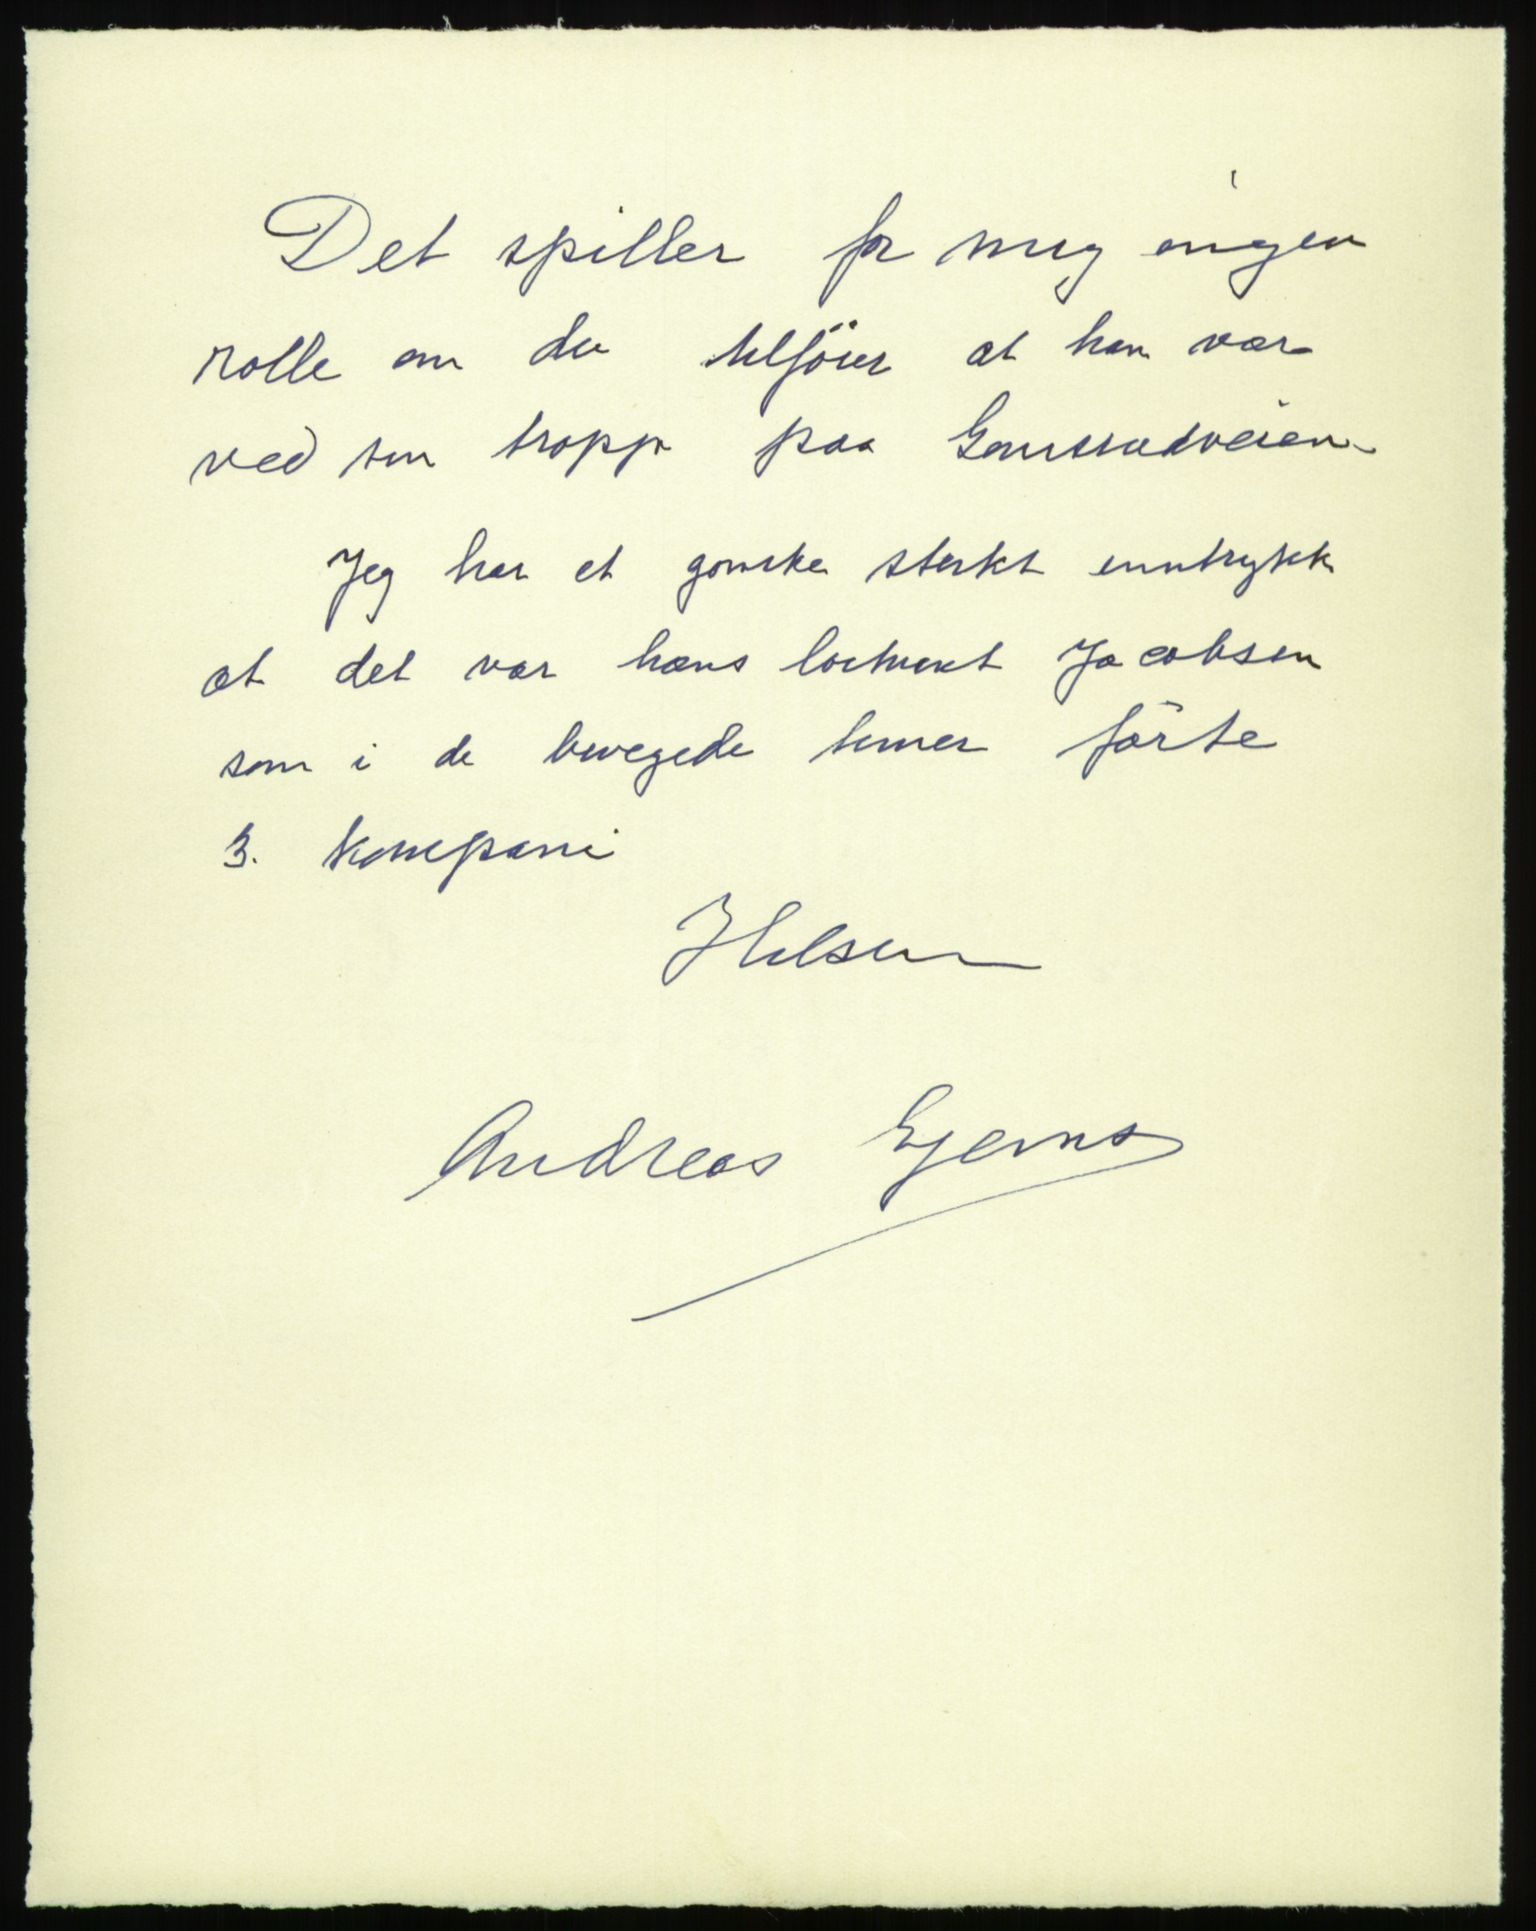 Det spiller for meg ingen
rolle om du tilföier at han var
ved sin tropp paa Gamsrudveien
Jeg har et ganske sterkt inntrykk
at det var hans löitnant Jacobsen
som i de bevegede timer förte
3. kompani
Hilsen
Andreas